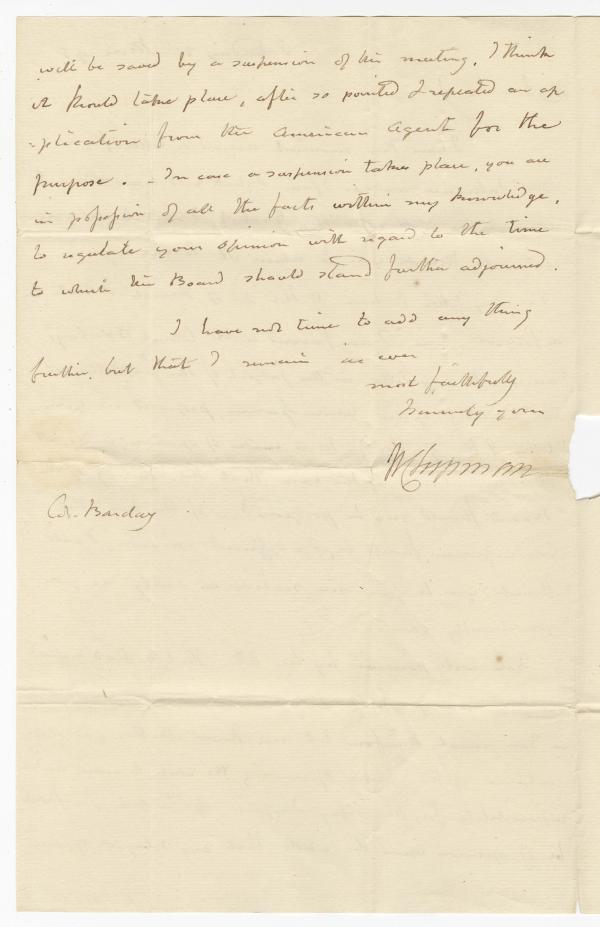 will be saved by a suspension of the meeting. I think
it should take place, after so pointed & repeated an ap
=plication from the American Agent for the
purpose. - In case a suspension takes place, you are
in possession of all the facts within my knowledge,
to regulate your opinion with regard to the time
to which the Board should stand further adjourned.
I have not time to add any thing
further, but that I remain as ever
most faithfully
Sincerely yours
W Chipman
Col. Barclay